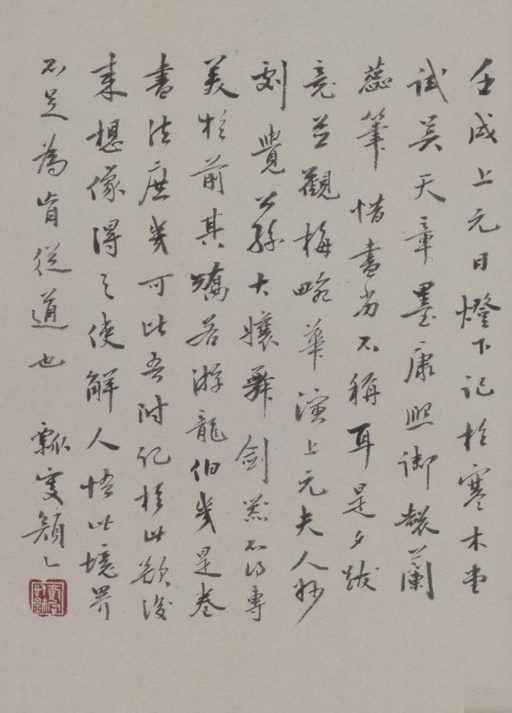 壬戌上元日燈下記於寒木堂
試吳天章墨康熙御製蘭
蕊筆惜書劣不稱耳是夕跋
竟並觀梅畹華演上元夫人妙
劇覺公孫大孃舞劍器不得專
美於前其矯若游龍伯幾是卷
書法庶幾可比吾附記於此欲後
來想像得之使解人悟此境界
不足為盲從道也 瓢叟